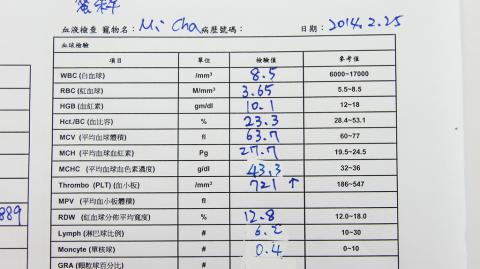 血液檢查 寵物名：Mi Cha 病歷號碼： 日期：2014.2.25
血球檢驗
項目 單位 檢驗值 參考值
WBC (白血球) /mm³ 8.5 6000~17000
RBC (紅血球) M/mm³ 3.65 5.5~8.5
HGB (血紅素) gm/dl 10.1 12~18
Hct./BC (血比容) % 23.3 28.4~53.1
MCV (平均血球體積) fl 63.7 60~77
MCH (平均血球血紅素) Pg 27.7 19.5~24.5
MCHC (平均血球血色素濃度) g/dl 43.3 32~36
Thrombo (PLT) (血小板) /mm³ 721 ↑ 186~547
MPV (平均血小板體積) fl
889
RDW (紅血球分佈平均寬度) % 12.8 12.0~18.0
Lymph (淋巴球比例) # 6.2 10~30
Moncyte (單核球) # 0.4 0~10
GRA (顆粒球百分比) #